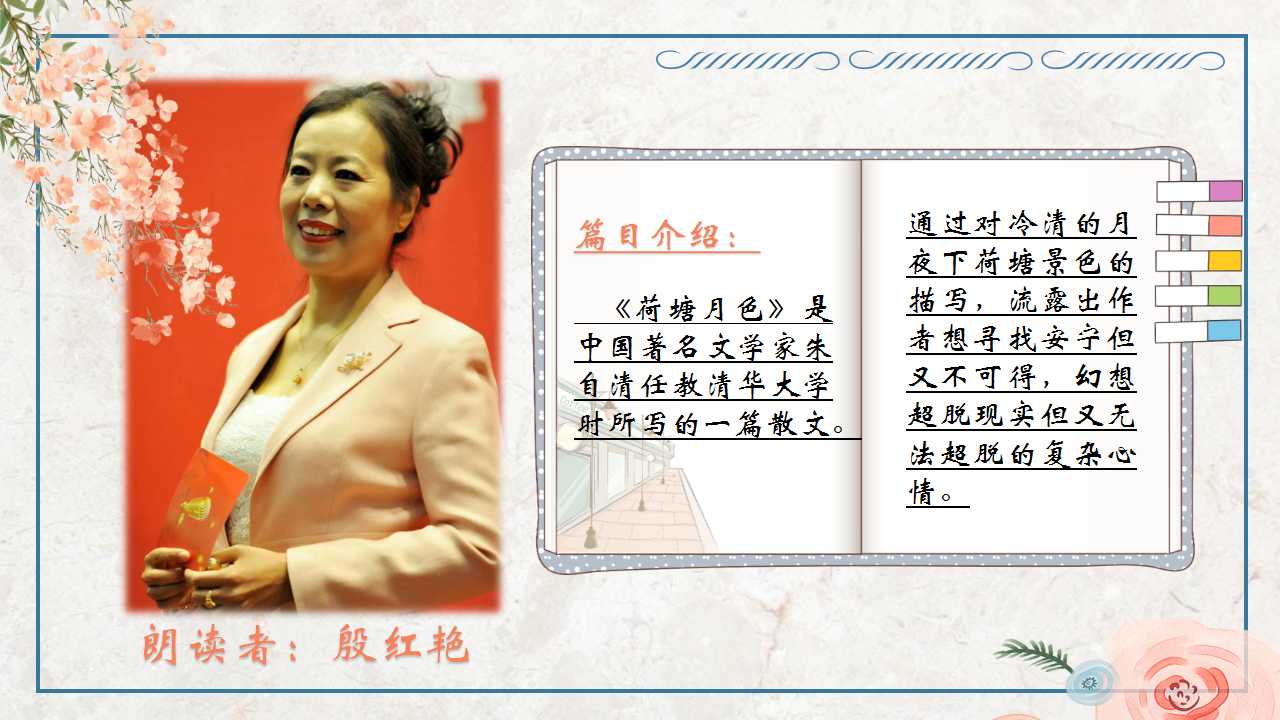 篇目介绍：
《荷塘月色》是
中国著名文学家朱
自清任教清华大学
时所写的一篇散文。
通过对冷清的月
夜下荷塘景色的
描写，流露出作
者想寻找安宁但
又不可得，幻想
超脱现实但又无
法超脱的复杂心
情。
朗读者：殷红艳